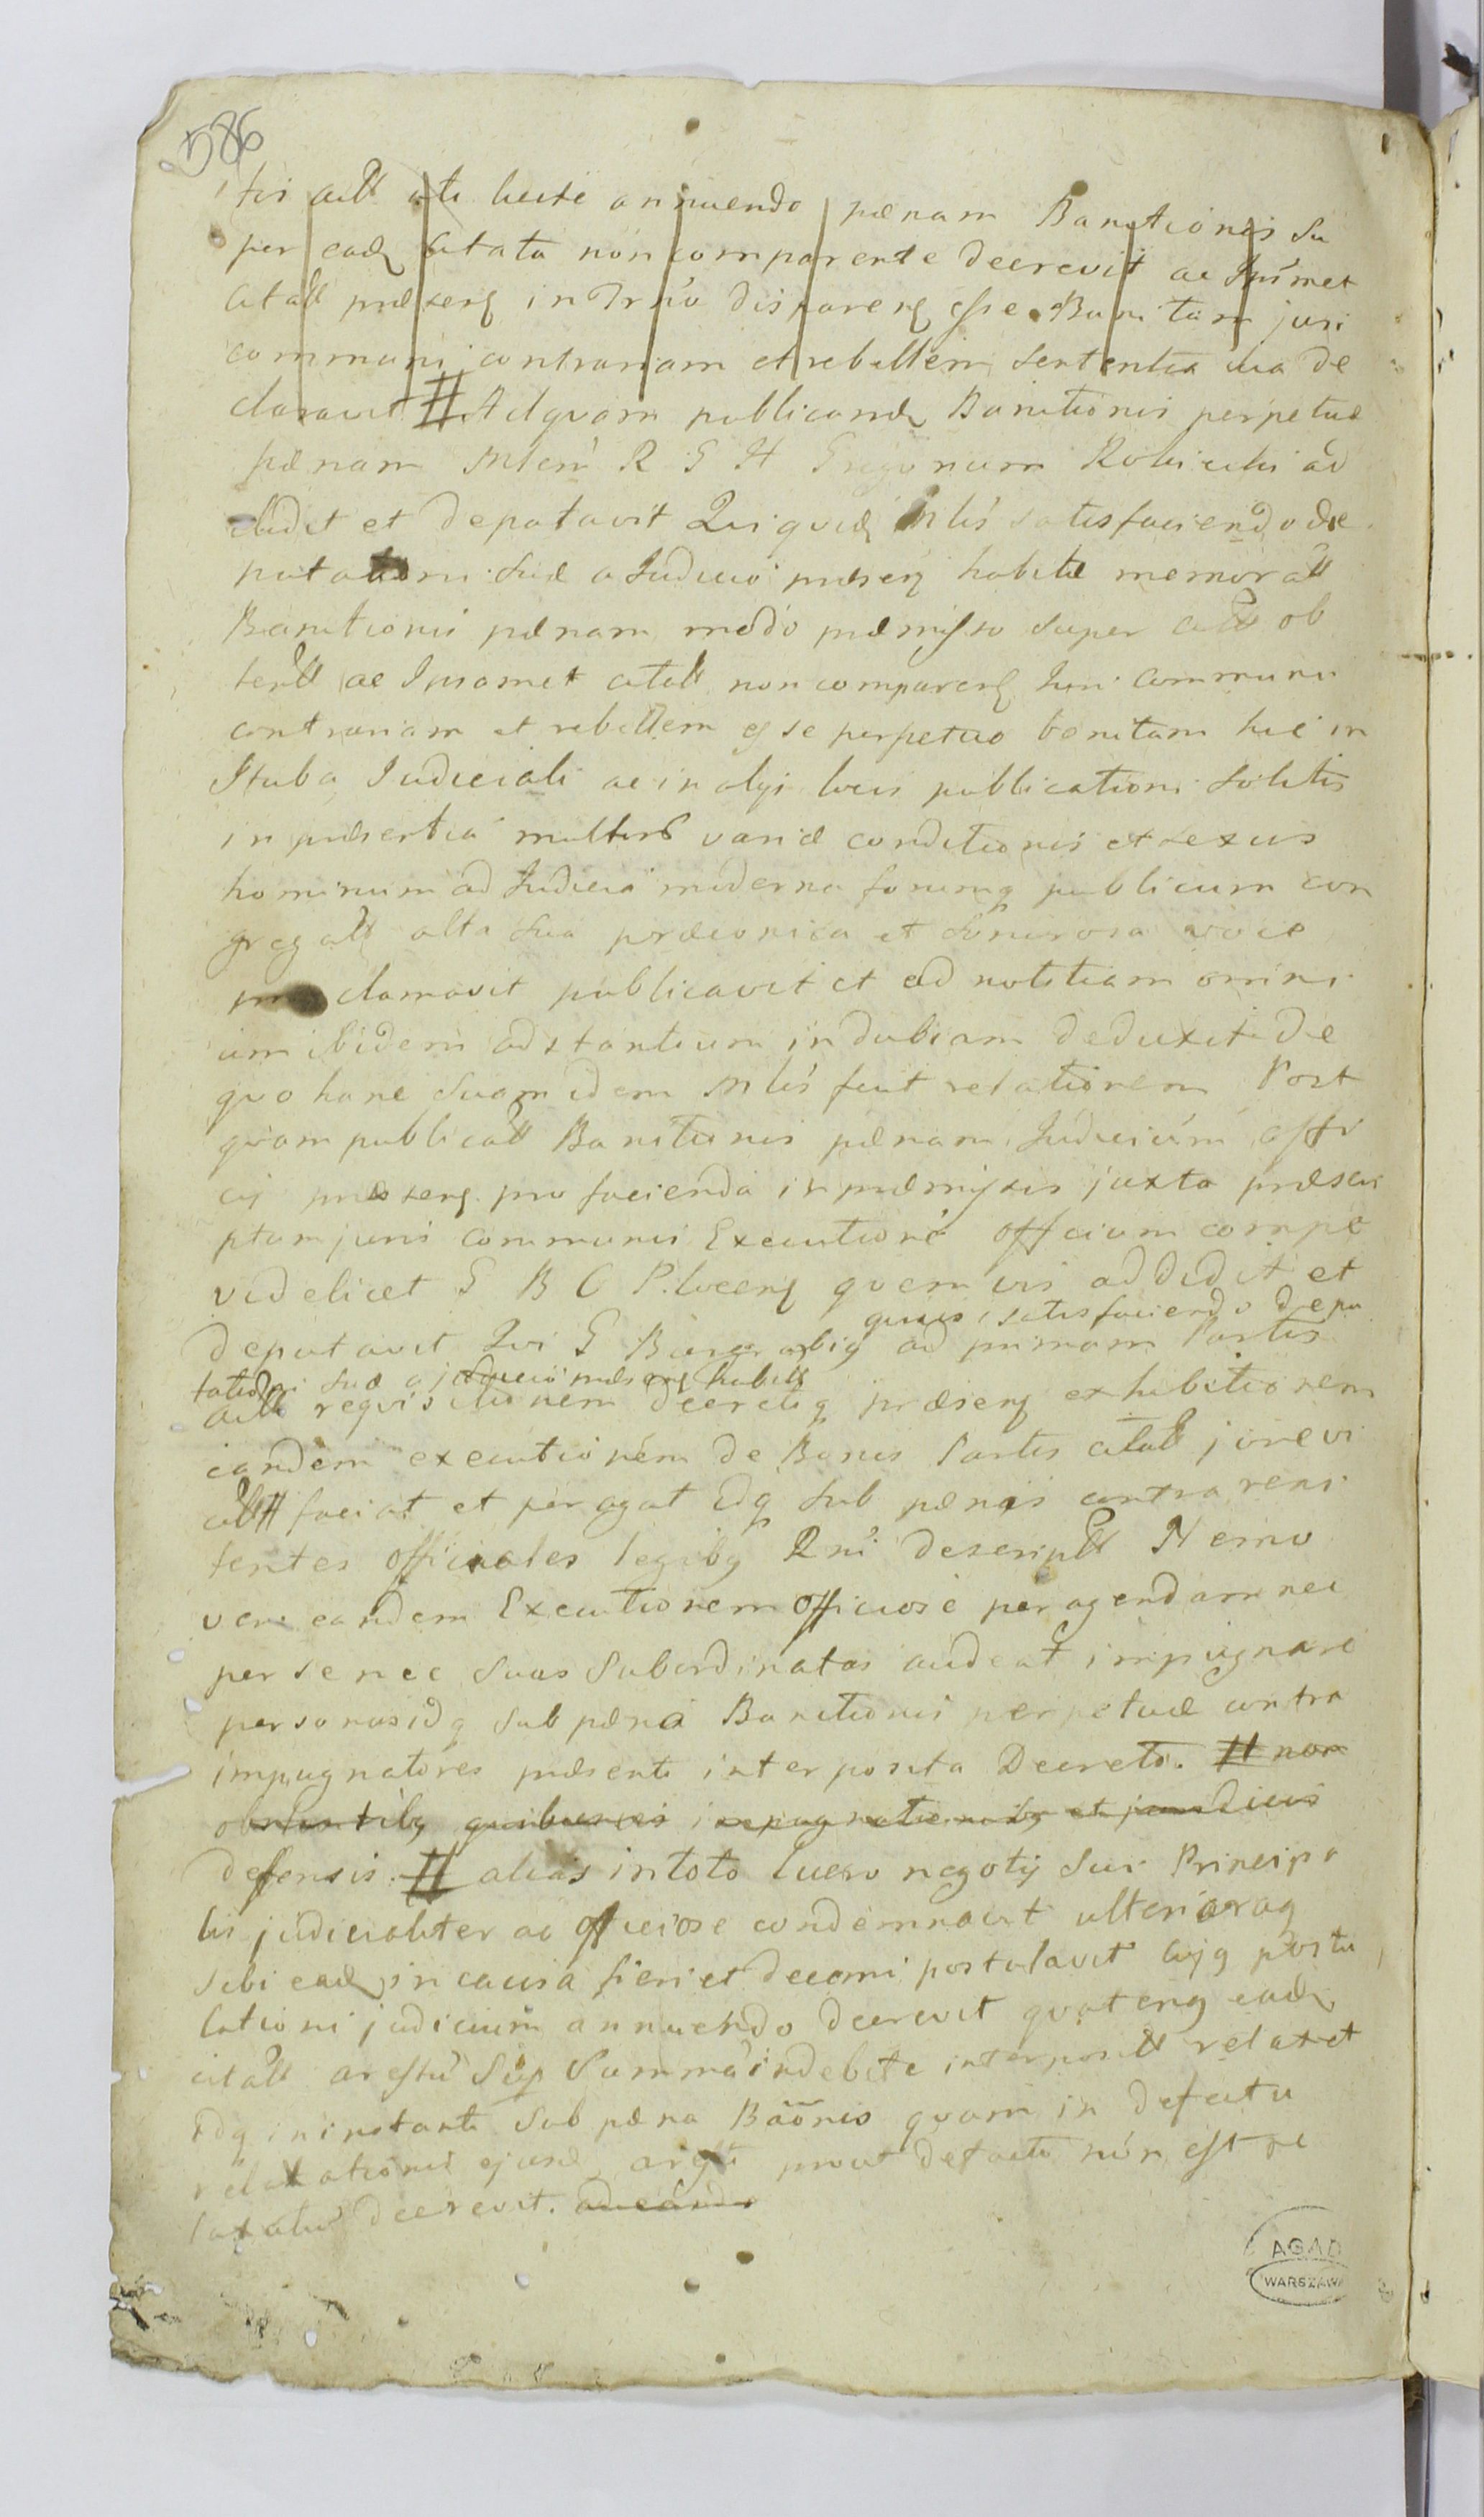 586
tis actt uti licite annuendo pænam Banitionis su
per eadȩ citata non comparente decrevit ac Ipsimet
citatt præseną in Trno disparenȩ esse Banitam juri
communi contrariam et rebellem sententia sua de
claravit # Ad quam publicandȩ Banitionis perpetuæ
pænam Mlem R G H Gregorium Robicki ad
didit et deputavit Qui quidȩ Mlis satisfaciendo de
putationi suæ a Judicio præsenȩ habitæ memoratt
Banitionis pænam modo præmisso super citatt ob
tentt ac Ipsamet citatt non comparenȩ Juri communi
contrariam et rebellem esse perpetuo banitam hic in
Stuba Judiciali ac in alys locis publicationi solitis
in præsentia multorū variæ conditionis et sexus
hominum ad Judicia moderna forumq publicum con
gregatt alta sua præconica et sonorosa voce
proclamavit publicavit et ad notitiam omni
um ibidem adstantium indubiam deduxit de
quo hanc suam idem Mlis fecit relationem Post
quam publicatt Banitionis pænam Judicium offi
cij præsenȩ pro facienda in præmissis juxta præscri
ptum juris communis Executione officium compe
videlicet G B C P. locenȩ quemvis addidit et
quivis satisfaciendo depu
deputavit Qui G Burgrabig ad primam Partis
tationi suæ a judicio præsenȩ habitt
actt requisitionem decretiq præsenȩ exhibitionem
eandem executionem de Bonis Partis citatt jurevi
ctt# faciat et peragat Idq sub pænis contra reni
tentes officiales legibq Rni descriptt Nemo
vero eandem Executionem officiose peragendam nec
per se nec suas subordinatas audeat impugnare
personas idq sub pæna Banitionis perpetuæ contra
impugnatores præsenti interposita Decreto. # non
obstantibq quibusvis impugnationibq et juridicis
defensis. # alias in toto lucro negotij sui Principa
lis judicialiter ac officiose condemnavit ulterioraq
sibi eadȩ in causa fieri et decerni postulavit cujq postu
lationi judicium annuendo decrevit quatenq eadȩ
citatt arestū sup Summa indebite interpositt relaxet
Idq in instanti sub pæna Bāōnis quam in defectu
relaxationis ejusdȩ aresti prout defacto non est re
laxatū decrevit. ad eandȩ
AGAD
WARSZAWA